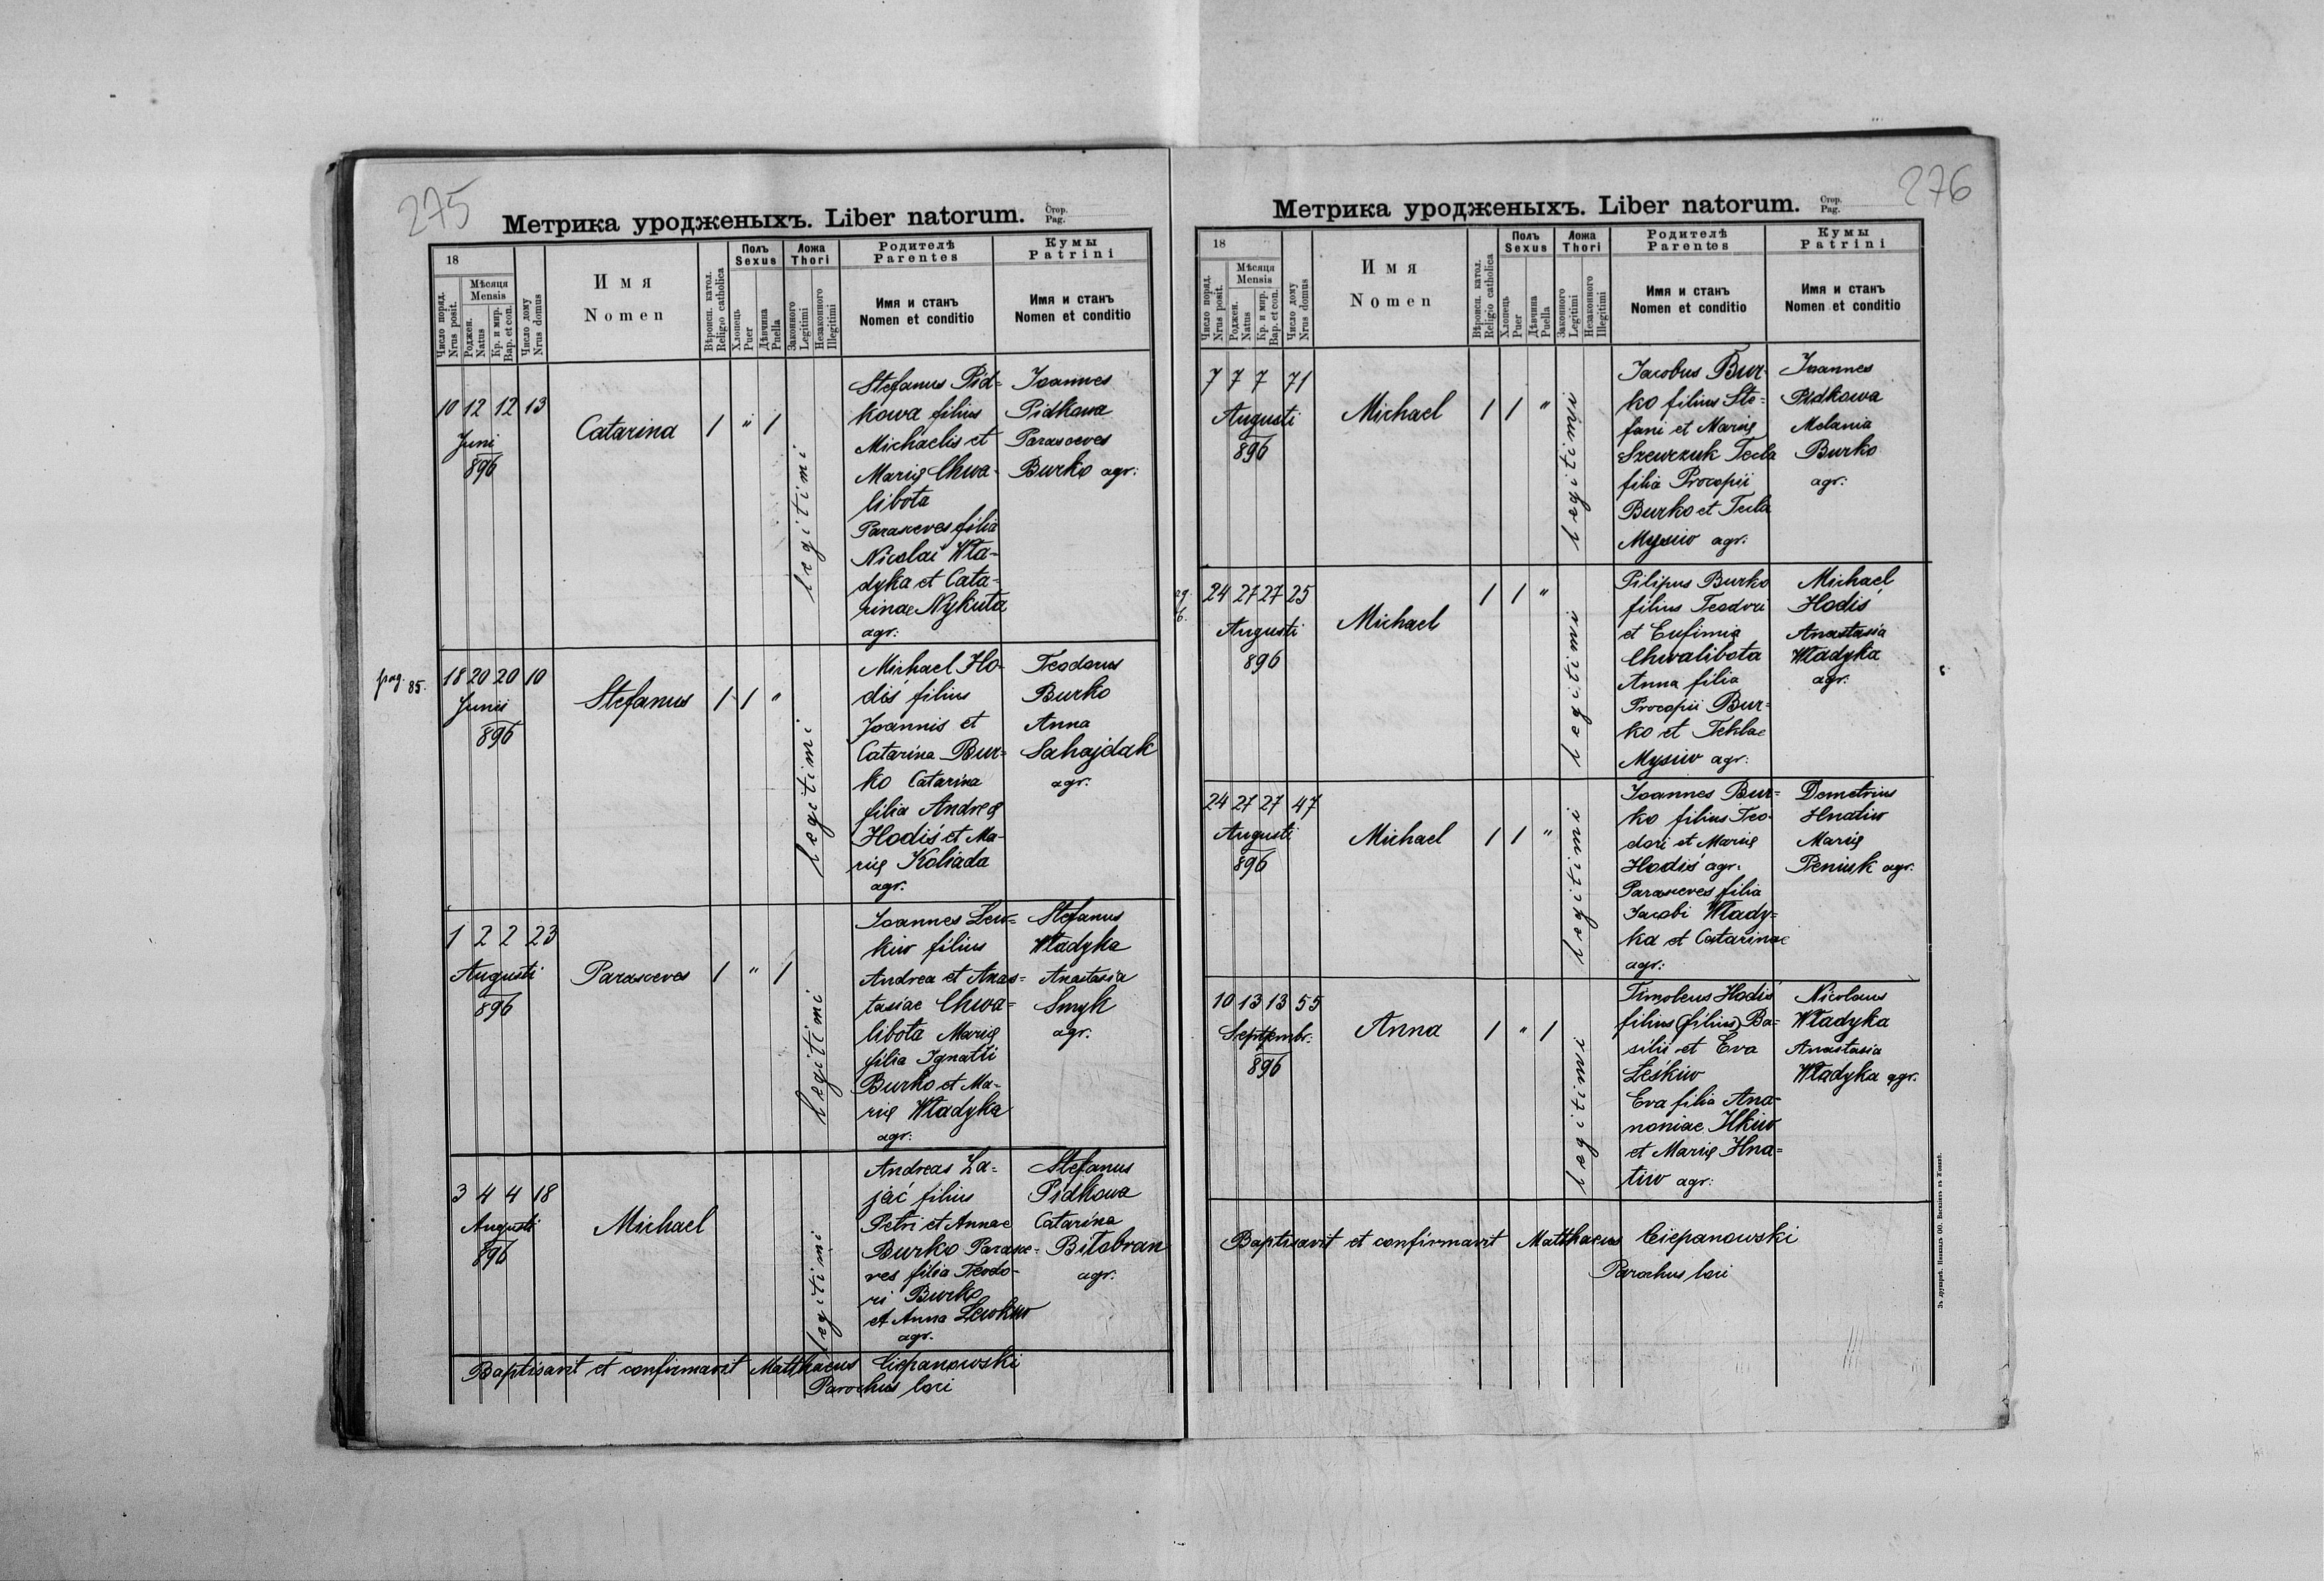 275
Метрика уродженыхъ. Liber natorum. Стор. Pag.
18
Число поряд. Nrus posit.
Мѣсяця Mensis
Роджен. Natus
Кр. и мир. Bap. et con.
Число дому Nrus domus
Имя
Nomen
Вѣроисп. катол. Religio catholica
Полъ Sexus
Хлопець Puer
Дѣвчина Puella
Ложа Thori
Законного Legitimi
Незаконного Illegitimi
Родителѣ
Parentes
Имя и станъ
Nomen et conditio
Кумы
Patrini
Имя и станъ
Nomen et conditio
10 12 12 13
Juni
896
Catarina
1 " 1
legitimi
Stefanus Pid=
kowa filius
Michaelis et
Marię Chwa-
libota
Parasceves filia
Nicolai Wła-
dyka et Cata-
rinae Nykuta
agr:
Joannes
Pidkowa
Parasceves
Burko agr:
pag. 85.
18 20 20 10
Junii
896
Stefanus
1 1 "
legitimi
Michael Ho-
diś filius
Joannis et
Catarina Bur=
ko Catarina
filia Andreę
Hodiś et Ma-
rię Koliada
agr.
Teodorus
Burko
Anna
Sahajdak
agr.
1 2 2 23
Augusti
896
Parasceves
1 " 1
legitimi
Joannes Lew=
kiw filius
Andrea et Anas=
tasiae Chwa=
libota Marię
filia Ignatii
Burko et Ma-
rię Władyka
agr:
Stefanus
Władyka
Anastasia
Smyk
agr.
3 4 4 18
Augusti
896
Michael
legitimi
Andreas Za=
jać filius
Petri et Annae
Burko Parasce-
ves filia Teodo-
ri Burko
et Anna Lewkiw
agr.
Stefanus
Pidkowa
Catarina
Biłobran
agr.
Baptisavit et confirmavit Matthaeus Ciepanowski
Parochus loci
276
Метрика уродженыхъ. Liber natorum. Стор. Pag.
18
Число поряд. Nrus posit.
Мѣсяця Mensis
Роджен. Natus
Кр. и мир. Bap. et con.
Число дому Nrus domus
Имя
Nomen
Вѣроисп. катол. Religio catholica
Полъ Sexus
Хлопець Puer
Дѣвчина Puella
Ложа Thori
Законного Legitimi
Незаконного Illegitimi
Родителѣ
Parentes
Имя и станъ
Nomen et conditio
Кумы
Patrini
Имя и станъ
Nomen et conditio
7 7 7 71
Augusti
896
Michael
1 1 "
legitimi
Jacobus Bur-
ko filius Ste=
fani et Marię
Szewczuk Tecla
filia Procopii
Burko et Tecla
Mysiw agr.
Joannes
Pidkowa
Melania
Burko
agr:
24 27 27 25
Augusti
896
Michael
1 1 "
legitimi
Pilipus Burko
filius Teodori
et Eufimię
Chwalibota
Anna filia
Procopii Bur=
ko et Teklae
Mysiw agr:
Michael
Hodiś
Anastasia
Władyka
agr.
24 27 27 47
Augusti
896
Michael
1 1 "
legitimi
Joannes Bur=
ko filius Teo-
dori et Marię
Hodiś agr.
Parasceves filia
Jacobi Włady=
ka et Catarinae
agr:
Demetrius
Hnatiw
Marię
Peniuk agr.
10 13 13 55
Septembr:
896
Anna
1 " 1
legitimi
Timoteus Hodiś
filius (filius) Ba=
silii et Eva
Leśkiw
Eva filia Ana-
noniae Ilkiw
et Marię Hna=
tiw agr:
Nicolaus
Władyka
Anastasia
Władyka agr.
Baptisavit et confirmavit Matthaeus Ciepanowski
Parochus loci